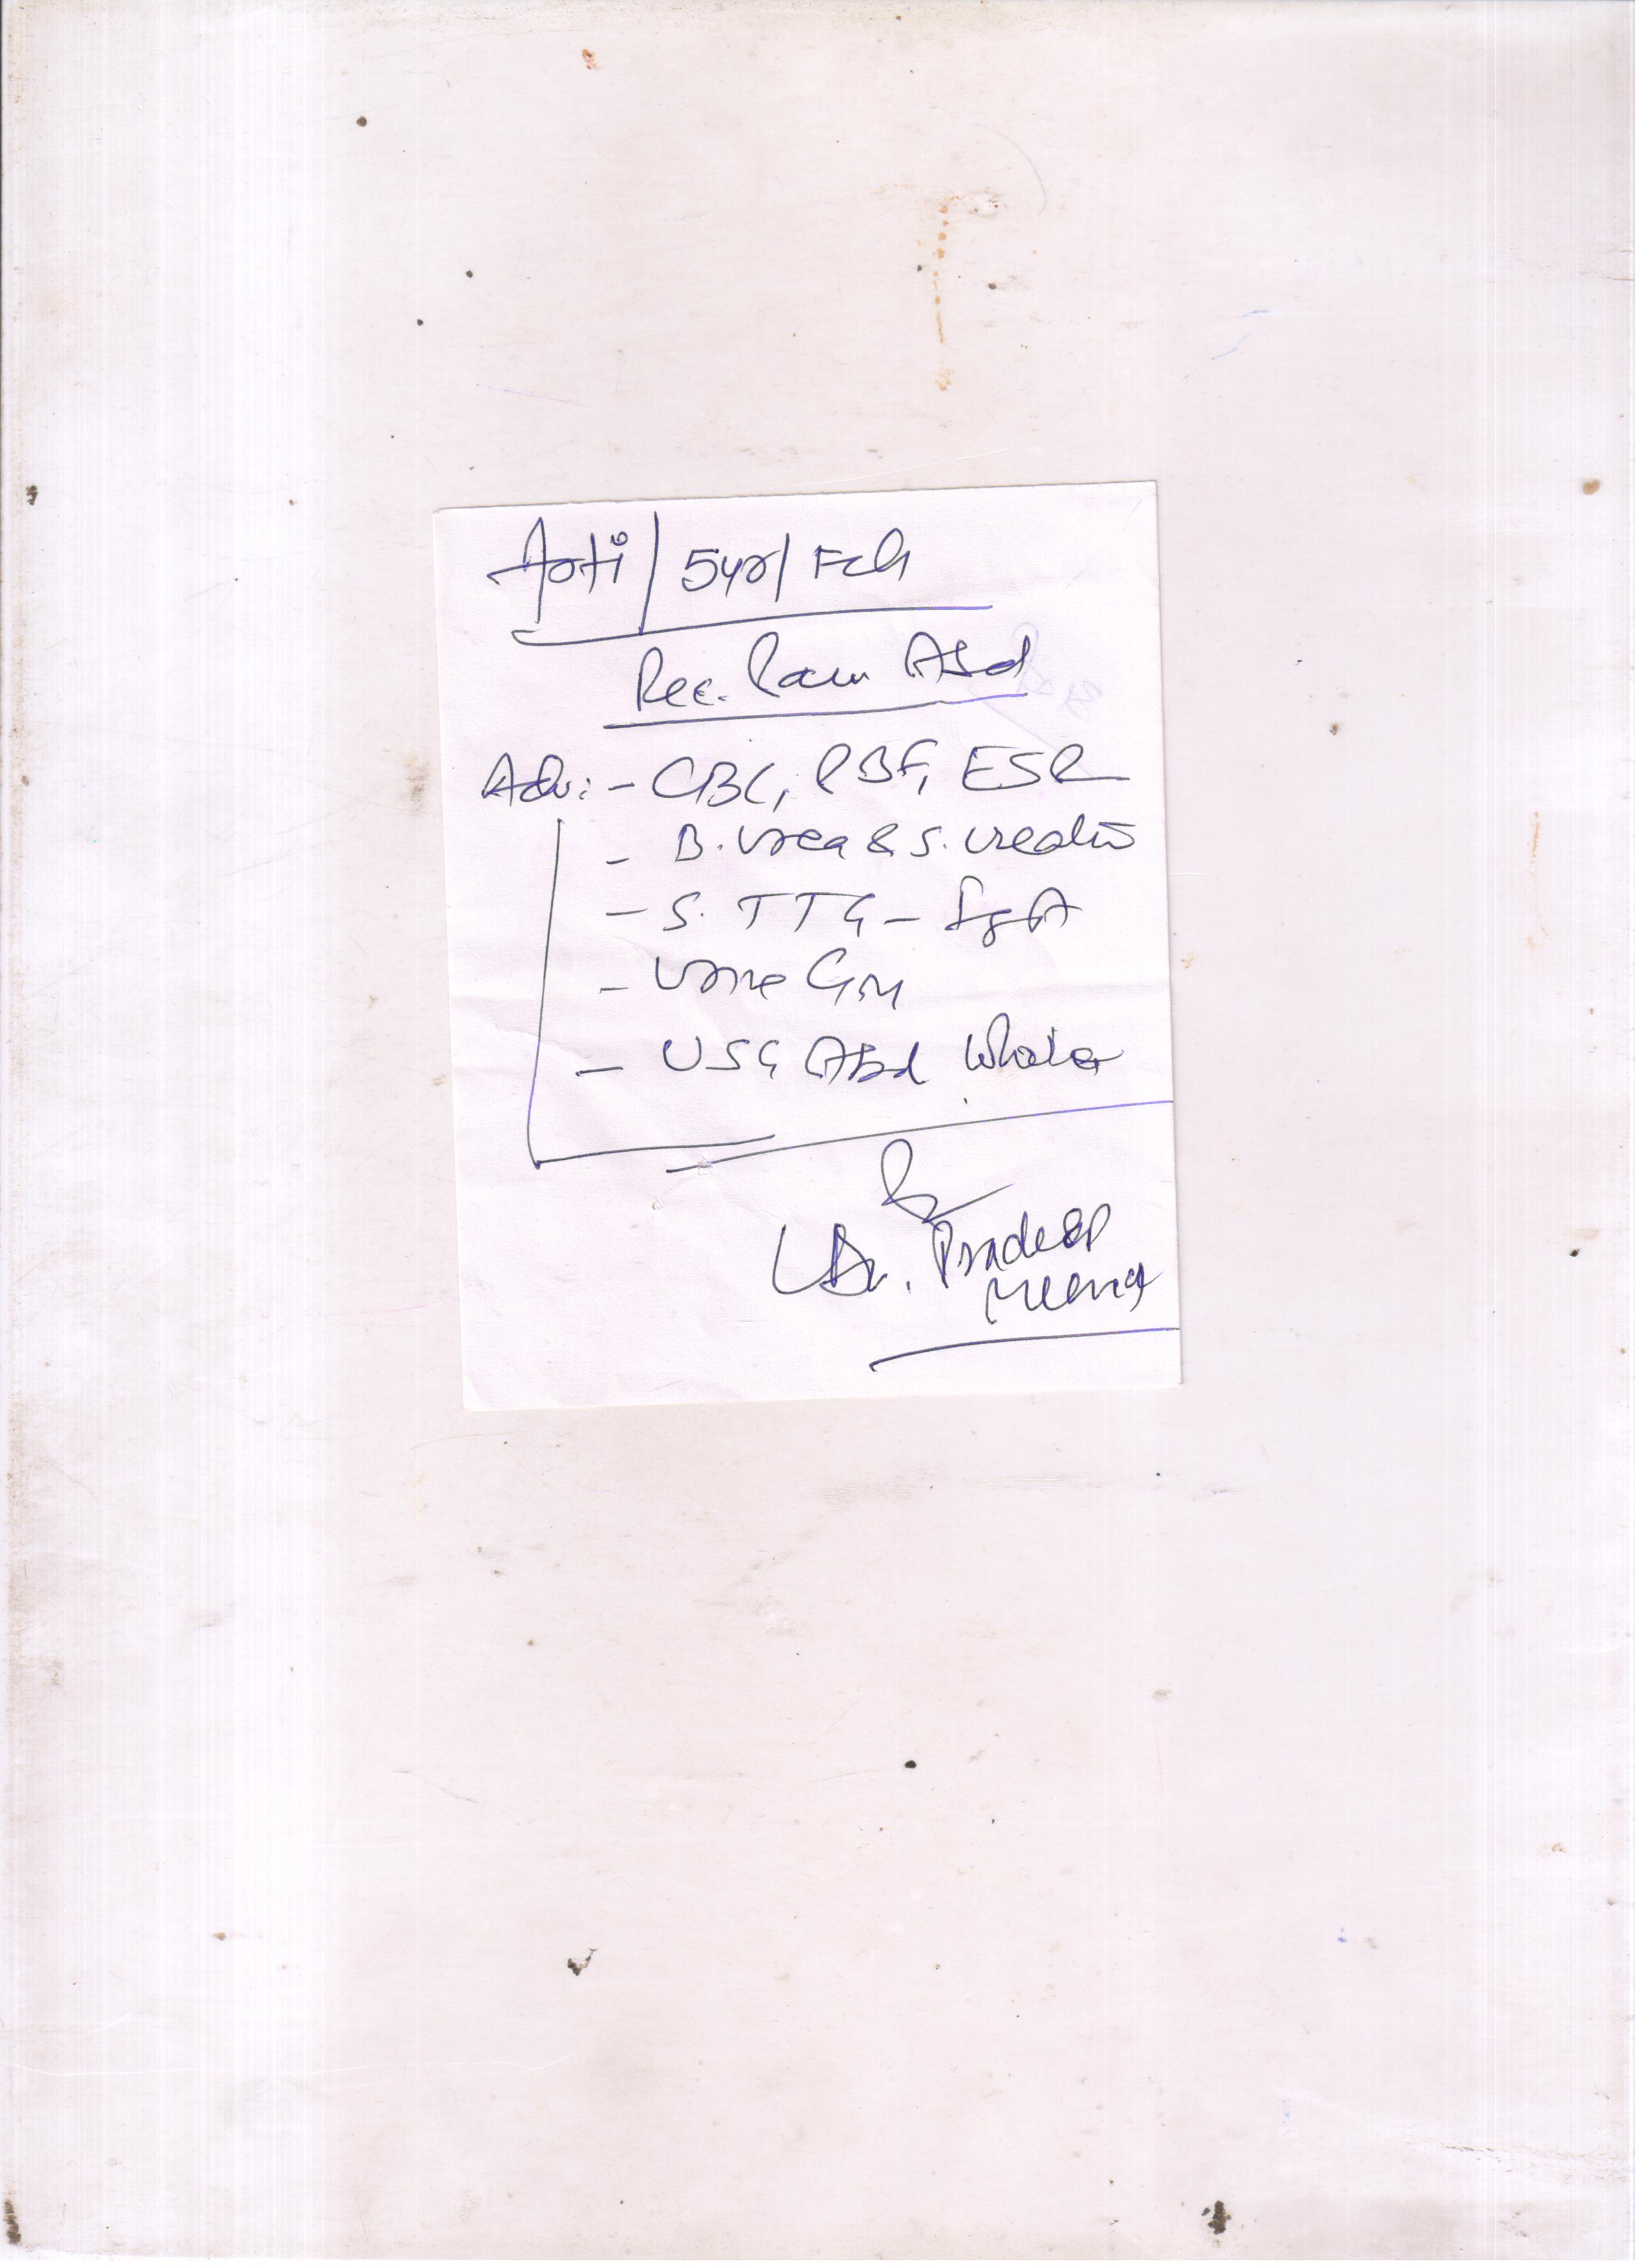 Arti / 5yr / Fch
Rec. Pain Abd
Adv: - CBC, PBF, ESR
- B. Urea & S. Creatin
- S. TTG - IgA
- Urine GM
- USG Abd Whole
Dr. Pradeep
Meena